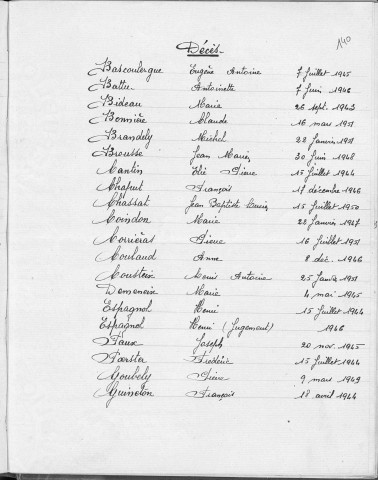 140
Décès
Bascoulergue Eugène Antoine 7 Juillet 1945
Battu Antoinette 7 Juin 1946
Bideau Marie 26 sept. 1943
Bonnière Claude 16 mars 1951
Brandely Michel 22 Janvier 1951
Brousse Jean Marien 30 Juin 1948
Cantin Elie Pierre 15 Juillet 1944
Chaput François 17 décembre 1946
Chassat Jean Baptiste 15 Juillet 1950
Coindon Marie 28 Janvier 1947
Corriéras Pierre 16 Juillet 1951
Coulaud Anne 8 déc. 1946
Cousteix Louis Antoine 25 Janvier 1951
Marie 4 mai 1945
Espagnol Henri 15 Juillet 1944
Espagnol Henri (Jugement) 1946
Faux Joseph 20 nov. 1945
Frédéric 15 Juillet 1944
Goubely Pierre 9 mars 1949
François 18 avril 1944